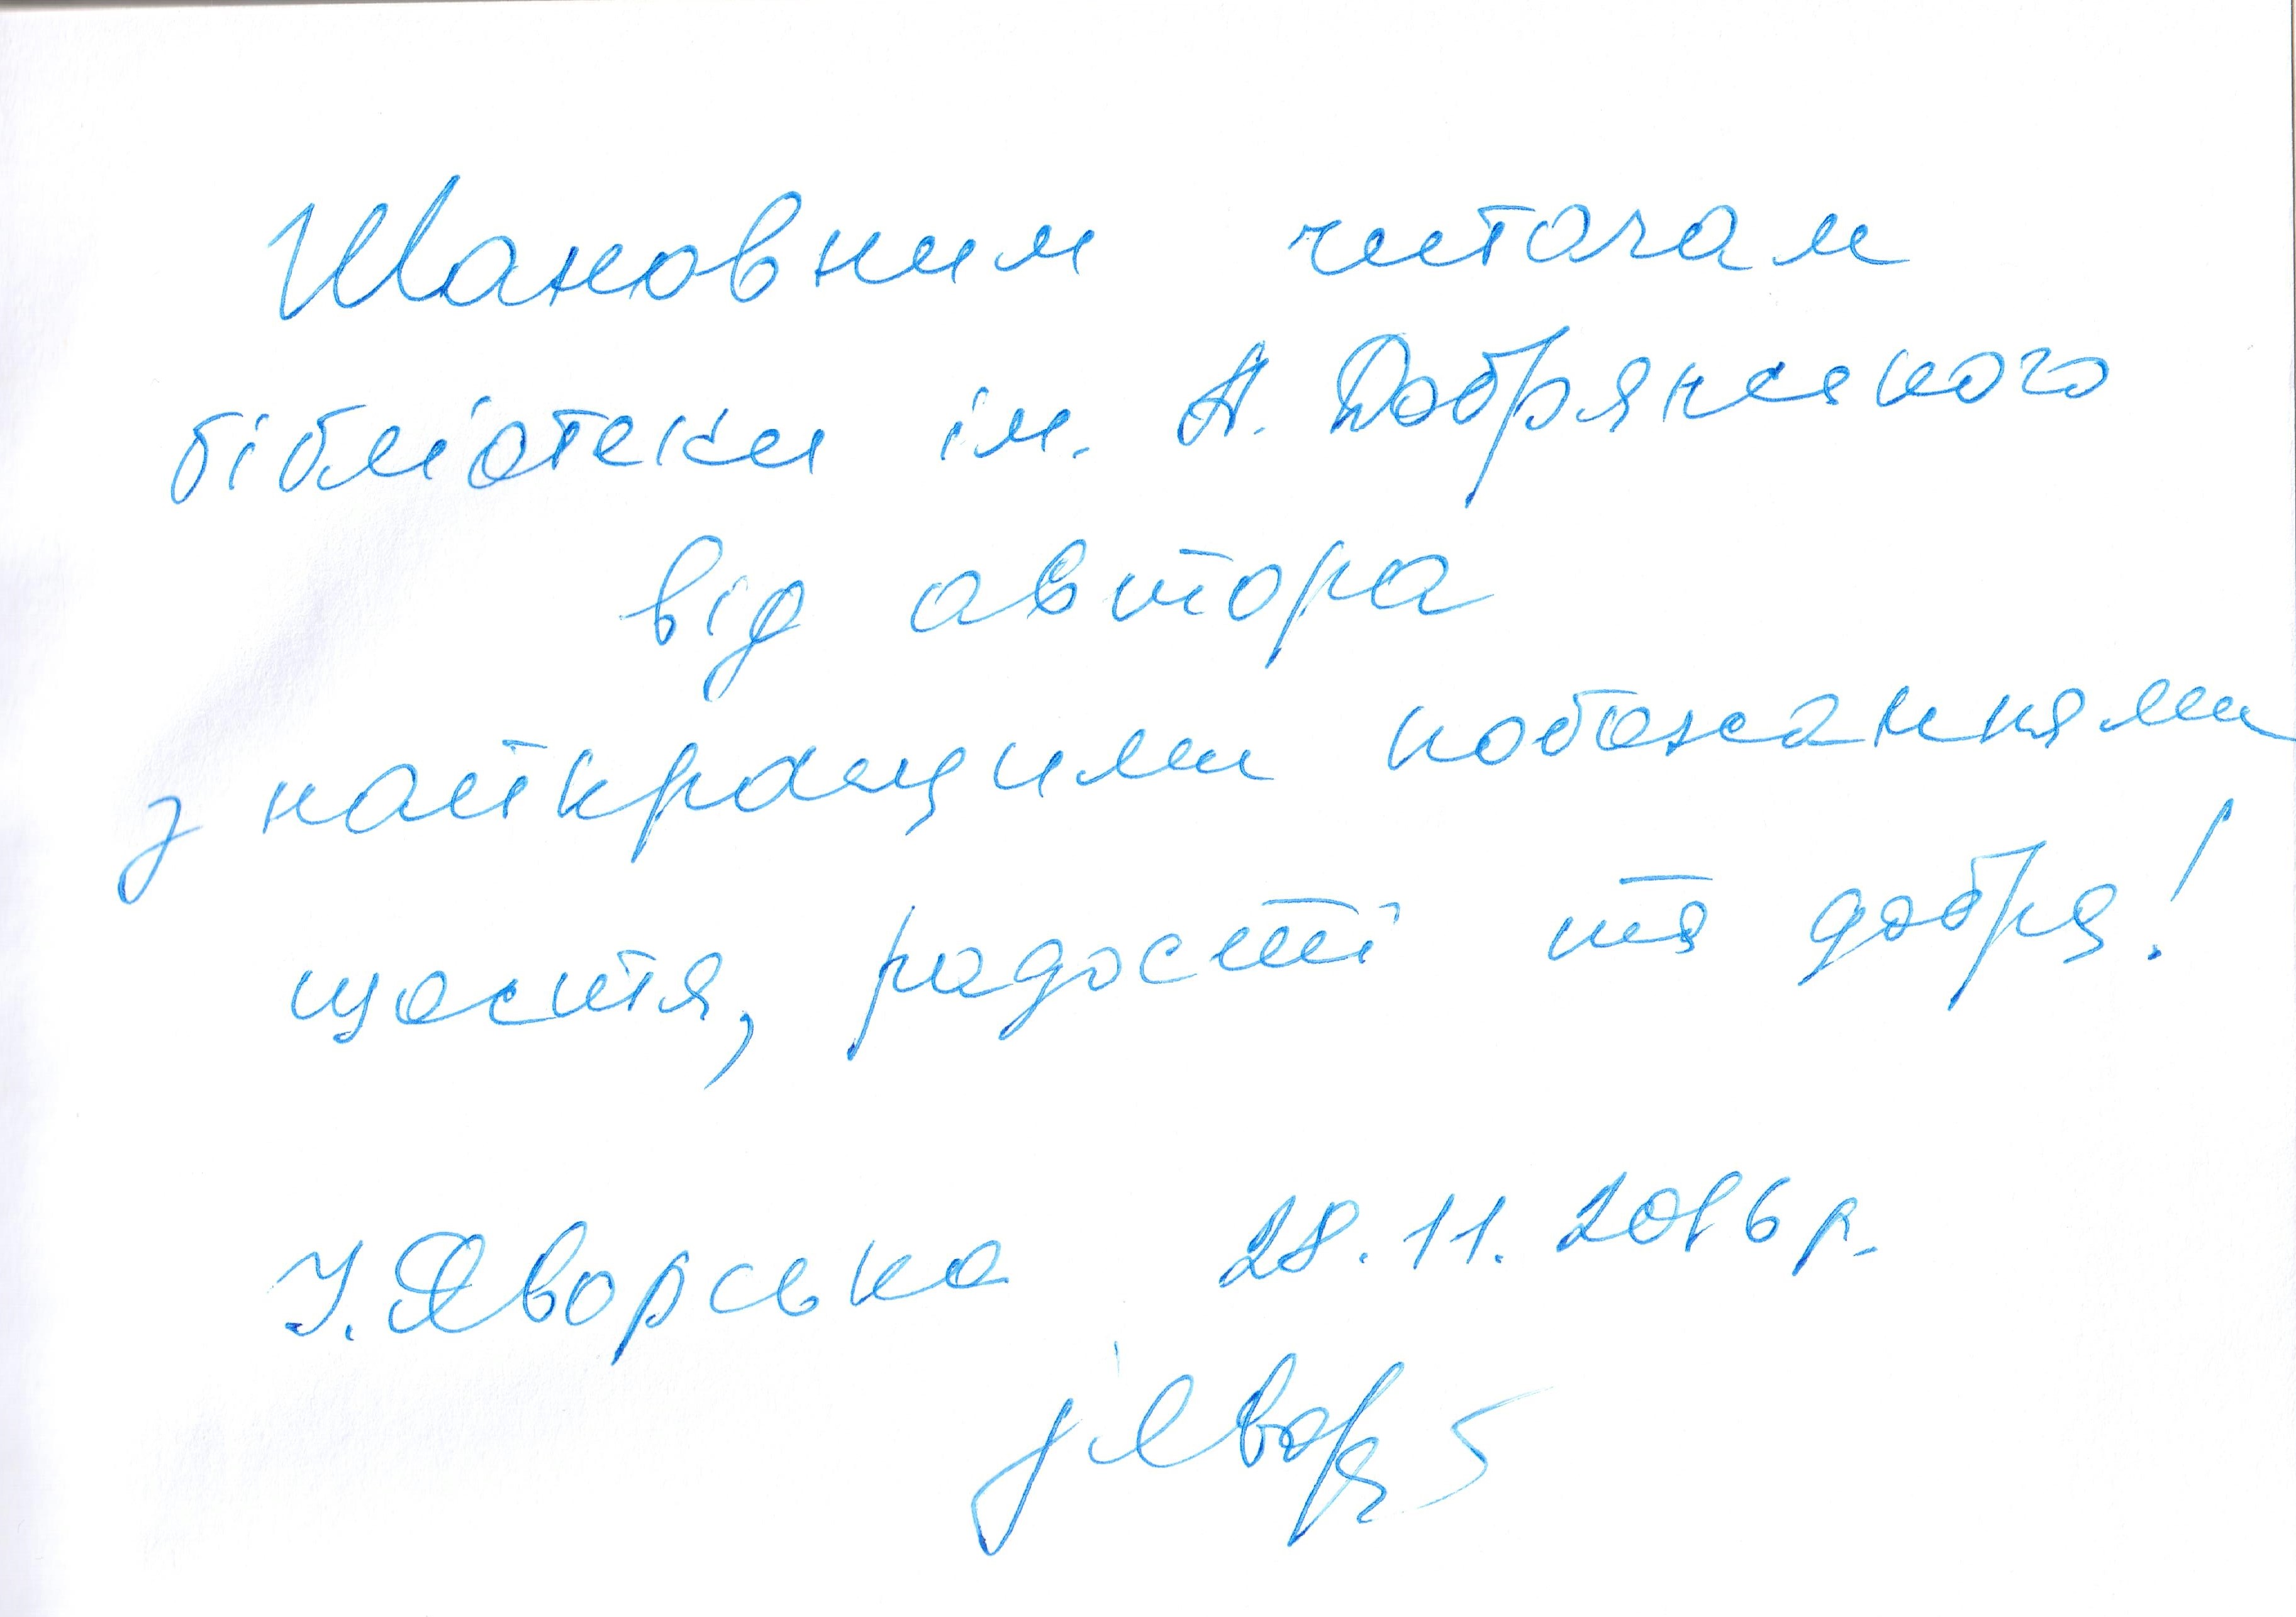 Шановним читачам
бібліотеки ім. А. Добрянського
від автора
з найкращими побажаннями
щастя, радості та добра!
У. Яворська 28.11.2016 р.